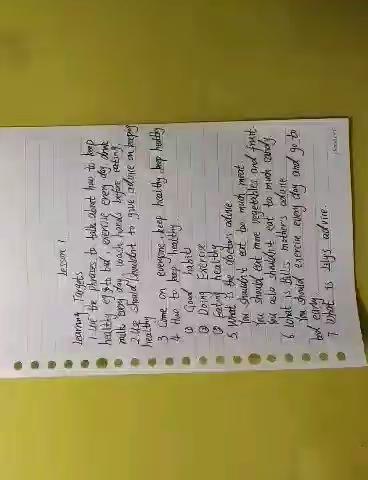 Lesson 1
Learning Targets
1 Use the phrases to talk about how to keep
healthy eg go to bed exercise every day drink
milk every day wash hands before eating
2 Use should/shouldn't to give advice on keeping
healthy
3 Come on everyone keep healthy keep healthy
4 How to keep healthy
① Good habits
② Doing Exercise
③ Eating healthy
5 What is the doctor's advice
You shouldn't eat to much meat
You should eat more vegetables and fruit
You also shouldn't eat to much candy
6 What is Bill's mother's advice
You should exercise every day and go to
bed early
7 What is Lily's advice